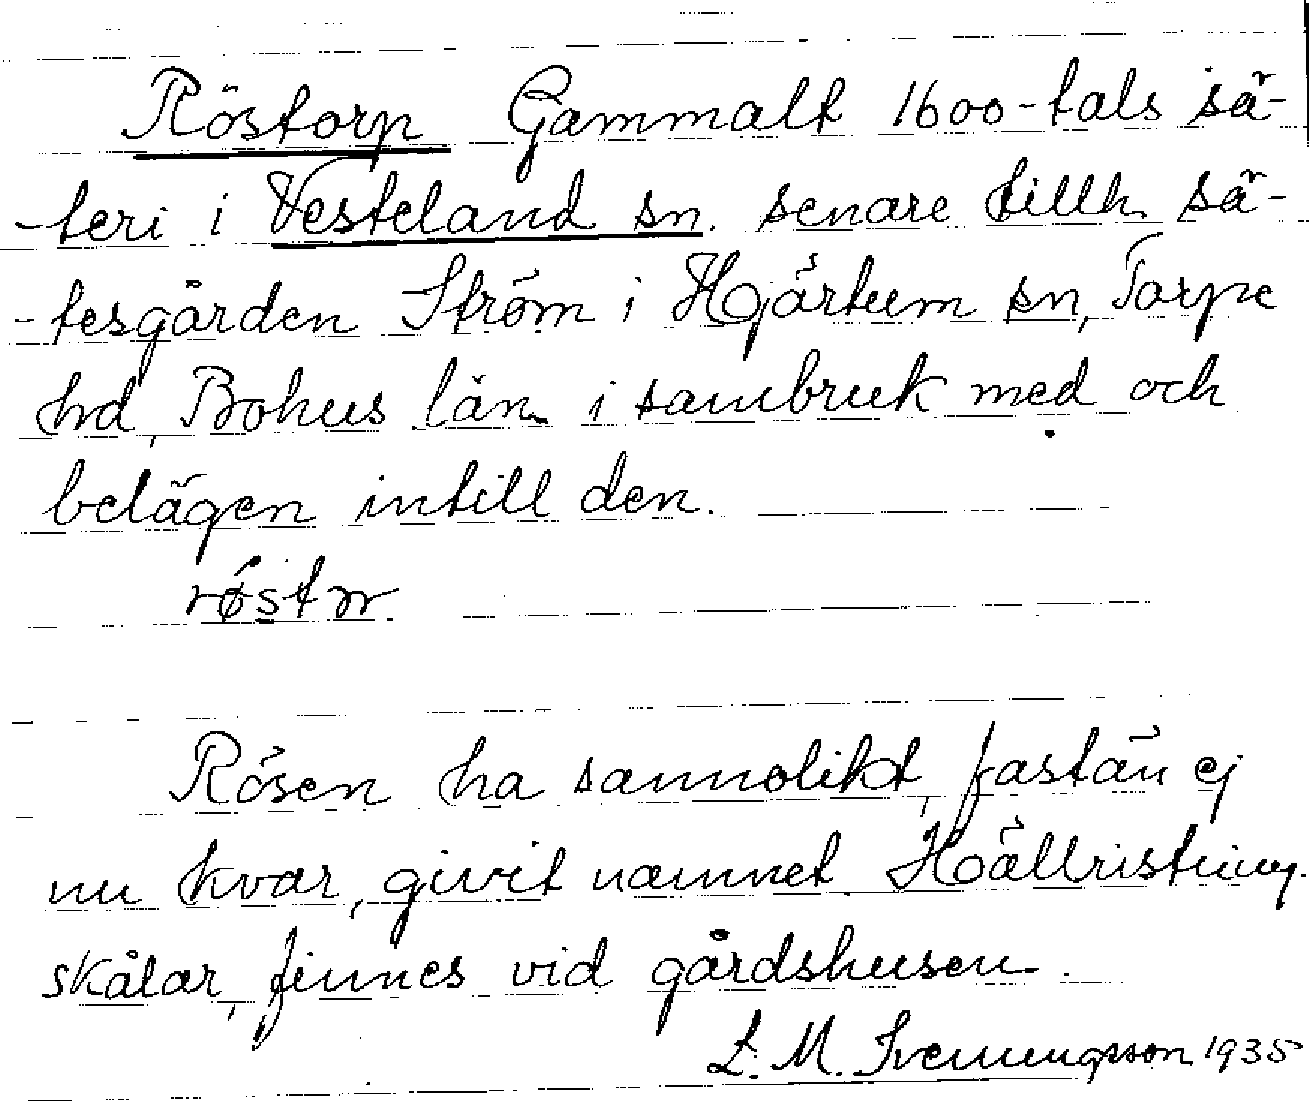 Röstorp Gammalt 1600-tals sä-
-teri i Vesteland sn. senare tillh. sä-
-tesgården Ström i Hjärtum sn, Torpe
hd, Bohus län i sambruk med och
belägen intill den.
røstɔr
Rösen ha sannolikt, fastän ej
nu kvar, givit namnet. Hällristning.
skålar, finnes vid gårdshusen.
L. M. Svenungsson 1935